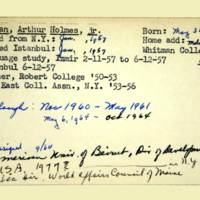 an, Arthur Holmes, jr. Born: May 3
d from N.Y.: Jan., 1957 Home add:
ed Istanbul: Jan., 1957 Whitman Coll
uage study, Izmir 2-11-57 to 6-12-57
nbul 6-12-57
er, Robert College '50-53
East Coll. Assn. '53-56
Nov 1960 - May 1961
May 6, 1964 - Oct 1964
signed 9/64
American Univ. of Beirut, Dir of Developm
USA, 1977? N.Y.
Dir., World Affairs Council of Maine